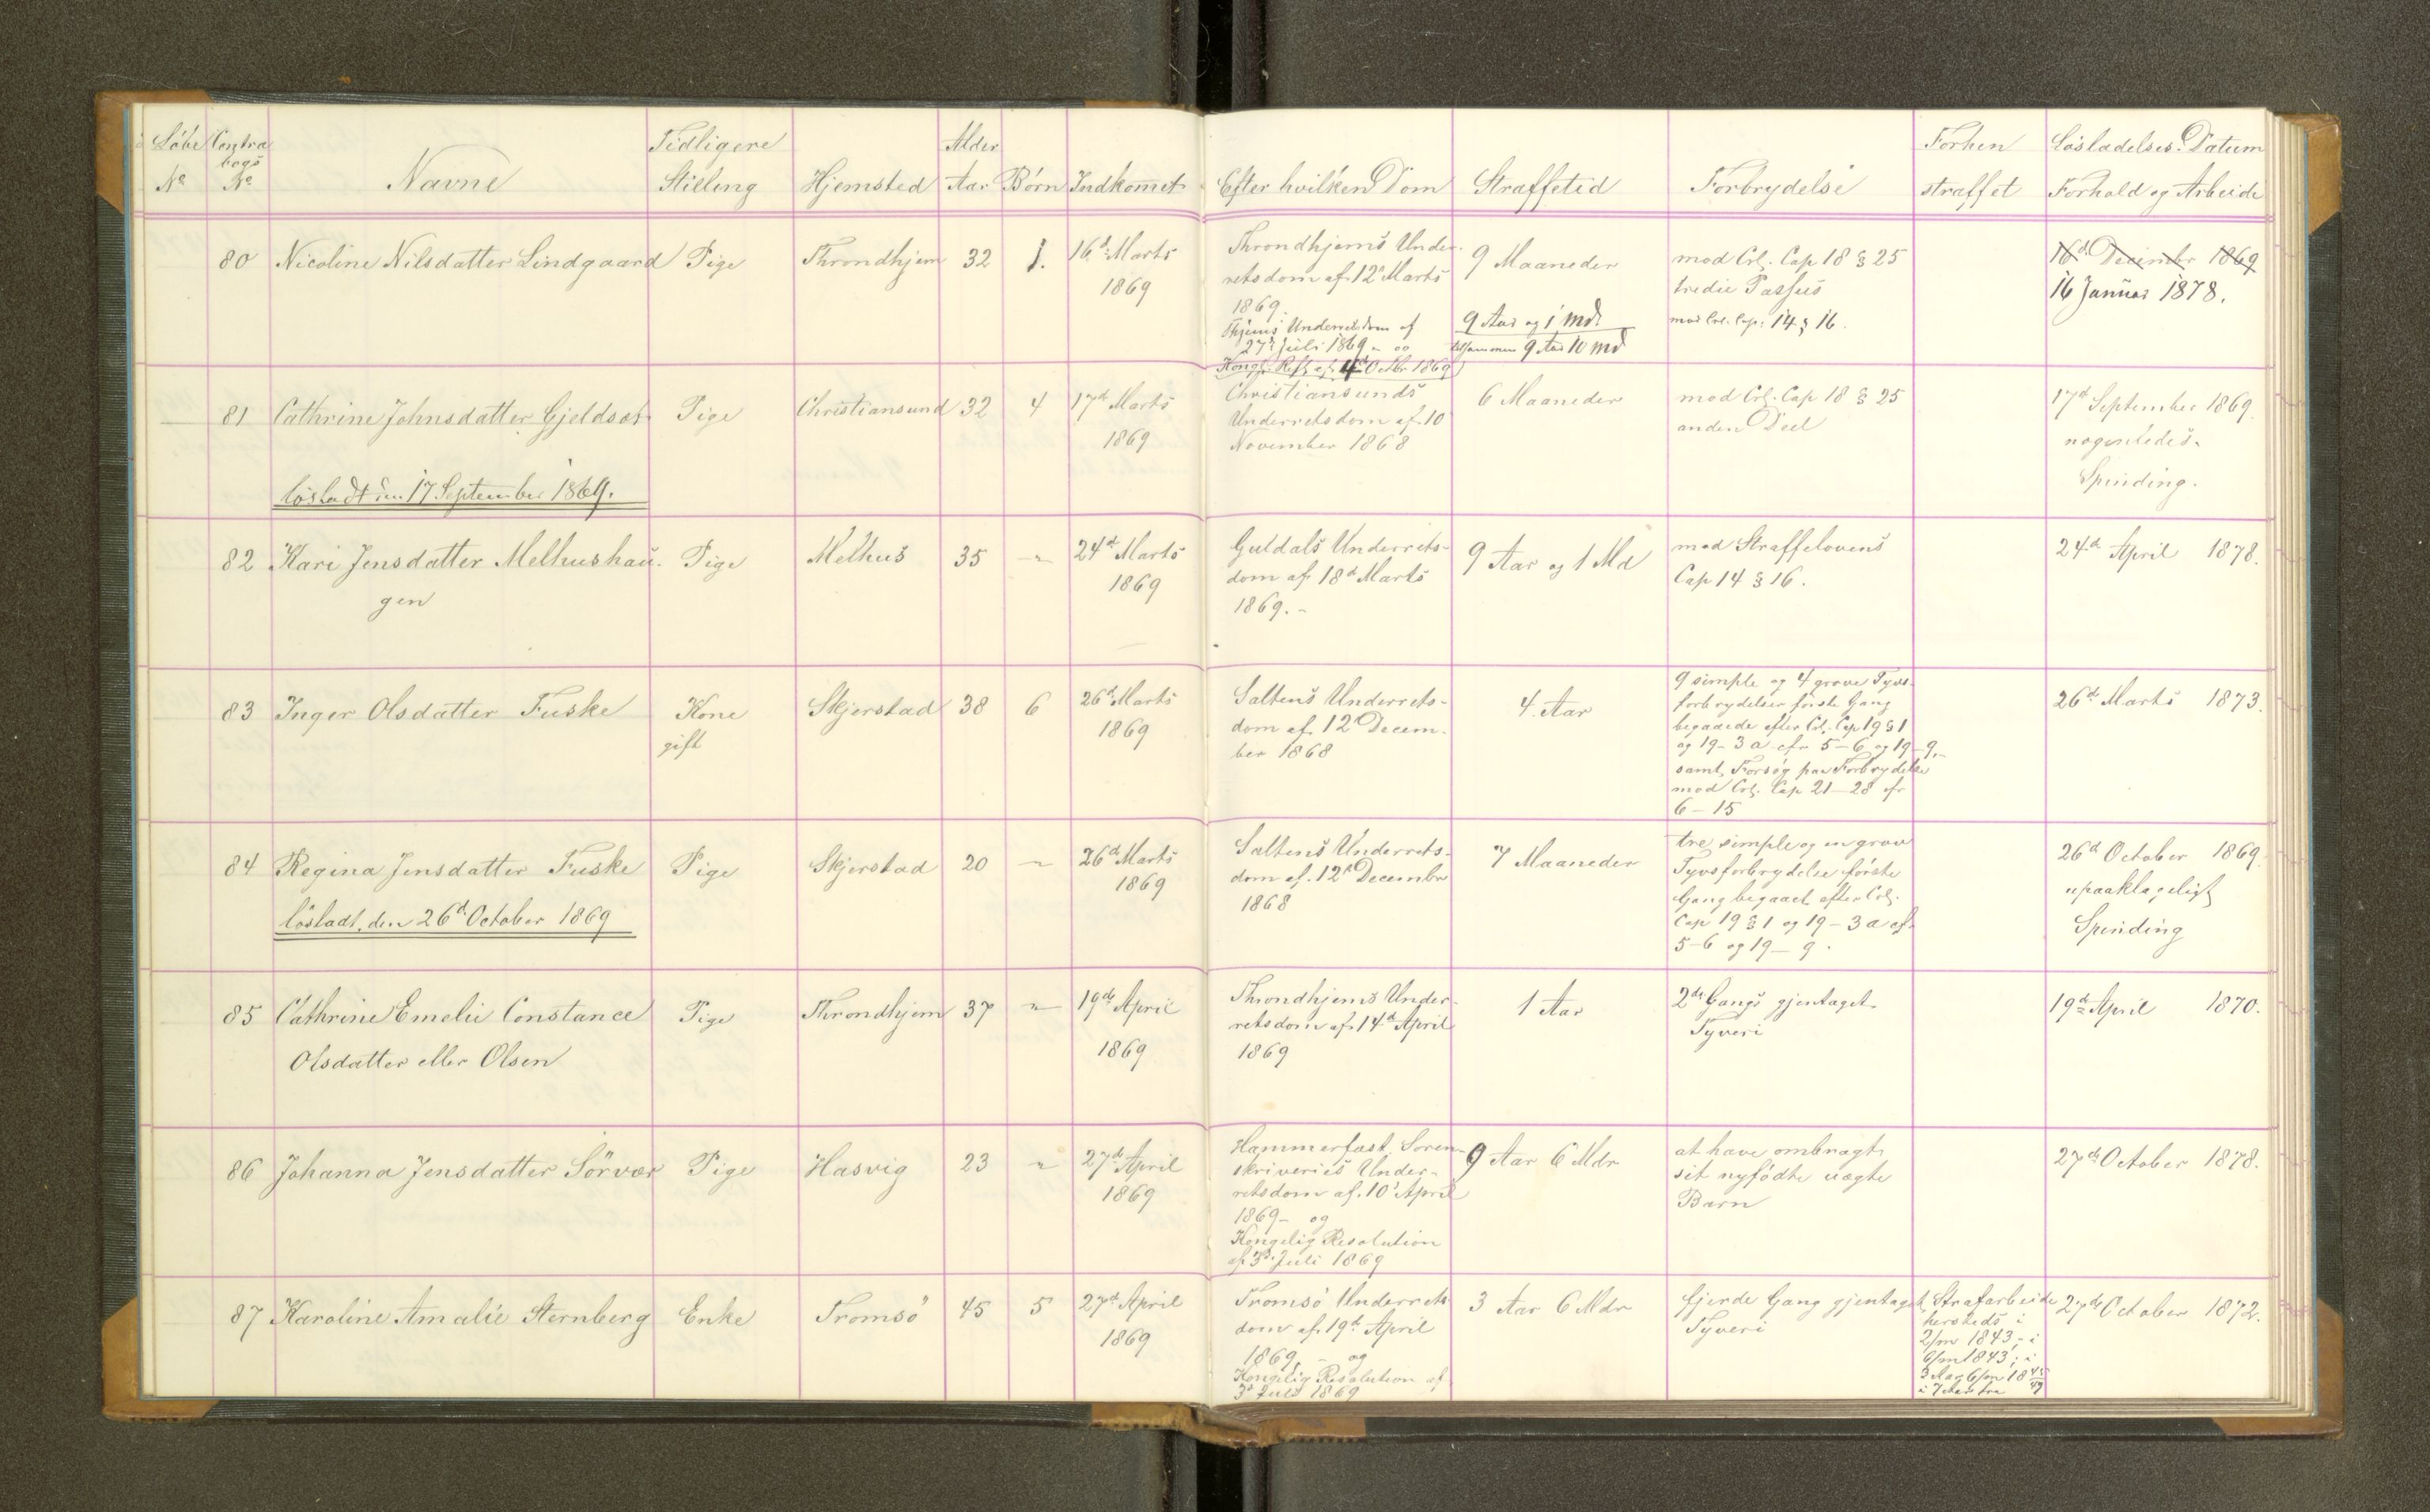 Löbe Contra Tidligere Alder Forhen Lösladelses-Datum
bogs
No No Navne Stilling Hjemsted Aar Börn Indkommet Efter hvilken Dom Straffetid Forbrydelse straffet Forhold og Arbeide
80 Nicoline Nilsdatter Lindgaard Pige Throndhjem 32 1. 16d Marts
1869
Throndhjems Under-
retsdom af 12d Marts
1869.
Thjems Underretsdom af
27d Juli 1869 - og
Kongl. Resl. af 4d Octbr 1869
9 Maaneder
9 Aar og 1 Md.
tilsammen 9 Aar 10 Md
mod Crl. Cap 18 § 25
tredie Passus
mod Crl. Cap: 14 § 16.
16d December 1869
16 Januar 1878.
81 Cathrine Johnsdatter Gjeldset Pige Christiansund 32 4 17d Marts
1869
lösladt den 17 September 1869.
Christiansunds
Underretsdom af 10
November 1868
6 Maaneder
mod Crl. Cap 18 § 25
anden Deel
17d September 1869.
nogenledes.
Spinding.
82 Kari Jensdatter Melhushau-
gen
Pige Melhus 35 " 24d Marts
1869
Guldals Underrets-
dom af 18d Marts
1869. -
9 Aar og 1 Md
mod Straffelovens
Cap 14 § 16.
24d April 1878.
83 Inger Olsdatter Fuske Kone
gift
Skjerstad 38 6 26d Marts
1869
Saltens Underrets-
dom af 12d Decem-
ber 1868
4. Aar
9 simple og 4 grove Tyvs-
forbrydelser förste Gang
begaaede efter Crl. Cap 19 § 1
og 19-3 a cfr 5-6 og 19-9,-
samt Forsög paa Forbrydelse
mod Crl. Cap 21-28 cfr
6-15
26d Marts 1873.
84 Regina Jensdatter Fuske Pige Skjerstad 20 " 26d Marts
1869
lösladt den 26d October 1869
Saltens Underrets-
dom af 12d Decembr
1868
7 Maaneder
tre simple og en grov
Tyvsforbrydelse förste
Gang begaaet efter Crl.
Cap 19 § 1 og 19-3 a cf.
5-6 og 19-9.
26d October 1869.
upaaklageligt
Spinding
85 Cathrine Emelie Constance
Olsdatter eller Olsen
Pige Throndhjem 37 " 19de April
1869
Throndhjems Under-
retsdom af 14d April
1869
1 Aar
2den Gangs gjentaget
Tyveri
19de April 1870.
86 Johanna Jensdatter Sörvær Pige Hasvig 23 " 27de April
1869
Hammerfast Soren-
skriveriës Under-
retsdom af 10d April
1869 - og
Kongelig Resolution
af 3d Juli 1869
9 Aar 6 Mdr
at have ombragt
sit nyfödte uægte
Barn
27de October 1878.
87 Karoline Amalie Sternberg Enke Tromsö 45 5 27de April
1869
Tromsö Underrets
dom af 19d April
1869, - og
Kongelig Resolution af
3d Juli 1869
3 Aar 6 Mdr
fjerde Gang gjentaget
Tyveri
Strafarbeide
hersteds i
2/m 1843; i
6/m 1843; i
3 Aar 6/m 18 45/49
i 7 Aar fra
27de October 1872.